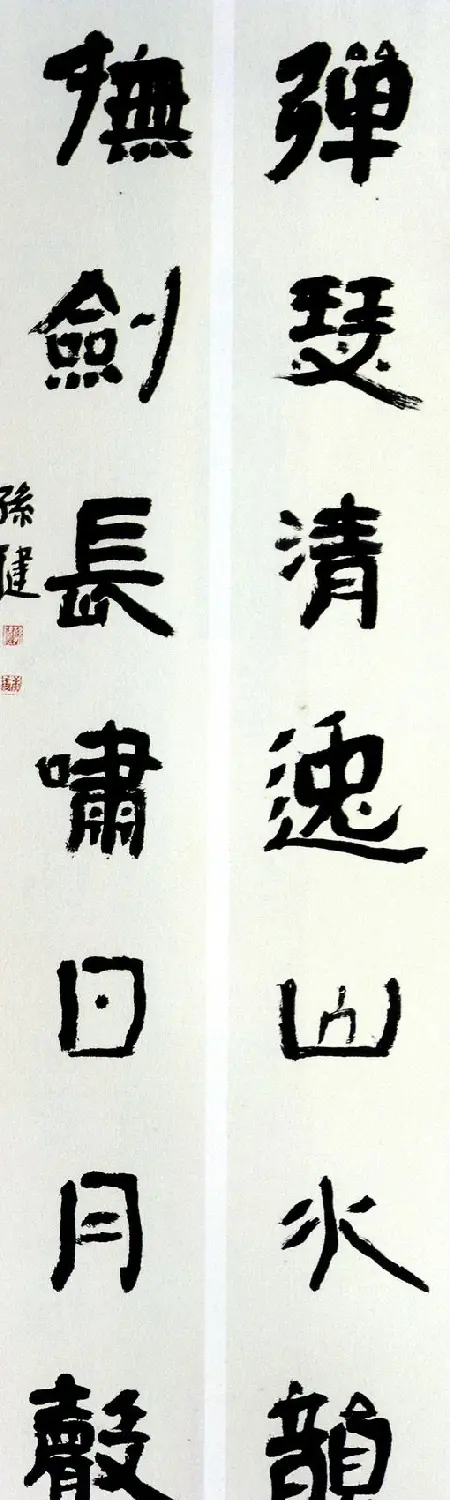 彈瑟清逸山水韻
撫劍長嘯日月聲
孫健